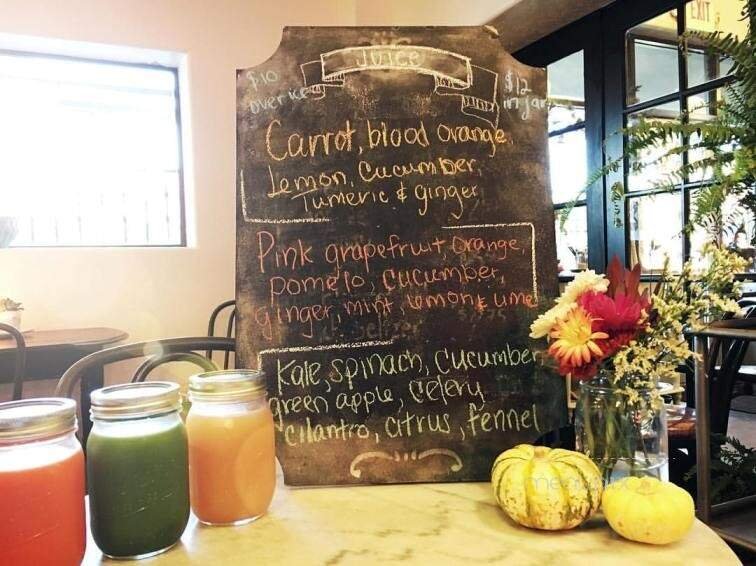 JUICE
$10
over ice
$12
in jar
Carrot, blood orange,
Lemon, Cucumber,
Tumeric & ginger
Pink grapefruit, orange,
pomelo, cucumber,
ginger, mint, lemon & lime
Seltzer
Kale, spinach, cucumber
green apple, celery
cilantro, citrus, fennel
EXIT